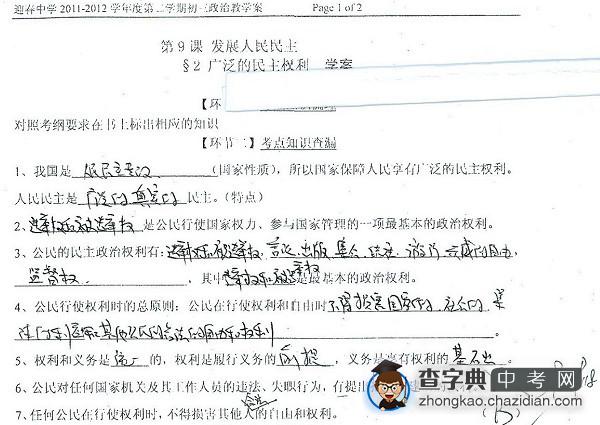 迎春中学 2011-2012 学年度第二学期初三政治教学案 Page 1 of 2
第 9 课 发展人民民主
§2 广泛的民主权利 学案
【环
对照考纲要求在书上标出相应的知识
【环节二】考点知识查漏
1、我国是 人民民主专政 (国家性质)，所以国家保障人民享有广泛的民主权利。
人民民主是 广泛的 真实的 民主。(特点)
2、选举权和被选举权 是公民行使国家权力、参与国家管理的一项最基本的政治权利。
3、公民的民主政治权利有：选举权和被选举权，言论、出版、集会、结社、游行、示威的自由、
监督权 ，其中 选举权和被选举权 是最基本的政治权利。
4、公民行使权利时的总原则：公民在行使权利和自由时 不得损害国家的 社会的 集
体的利益和其他公民的合法的自由和权利 。
5、权利和义务是 统一 的，权利是履行义务的 前提 ，义务是享有权利的 基础 。
6、公民对任何国家机关及其工作人员的违法、失职行为，有提出
7、任何公民在行使权利时，不得损害其他人的合法自由和权利。
(B)
查字典 中考网
zhongkao.chazidian.com